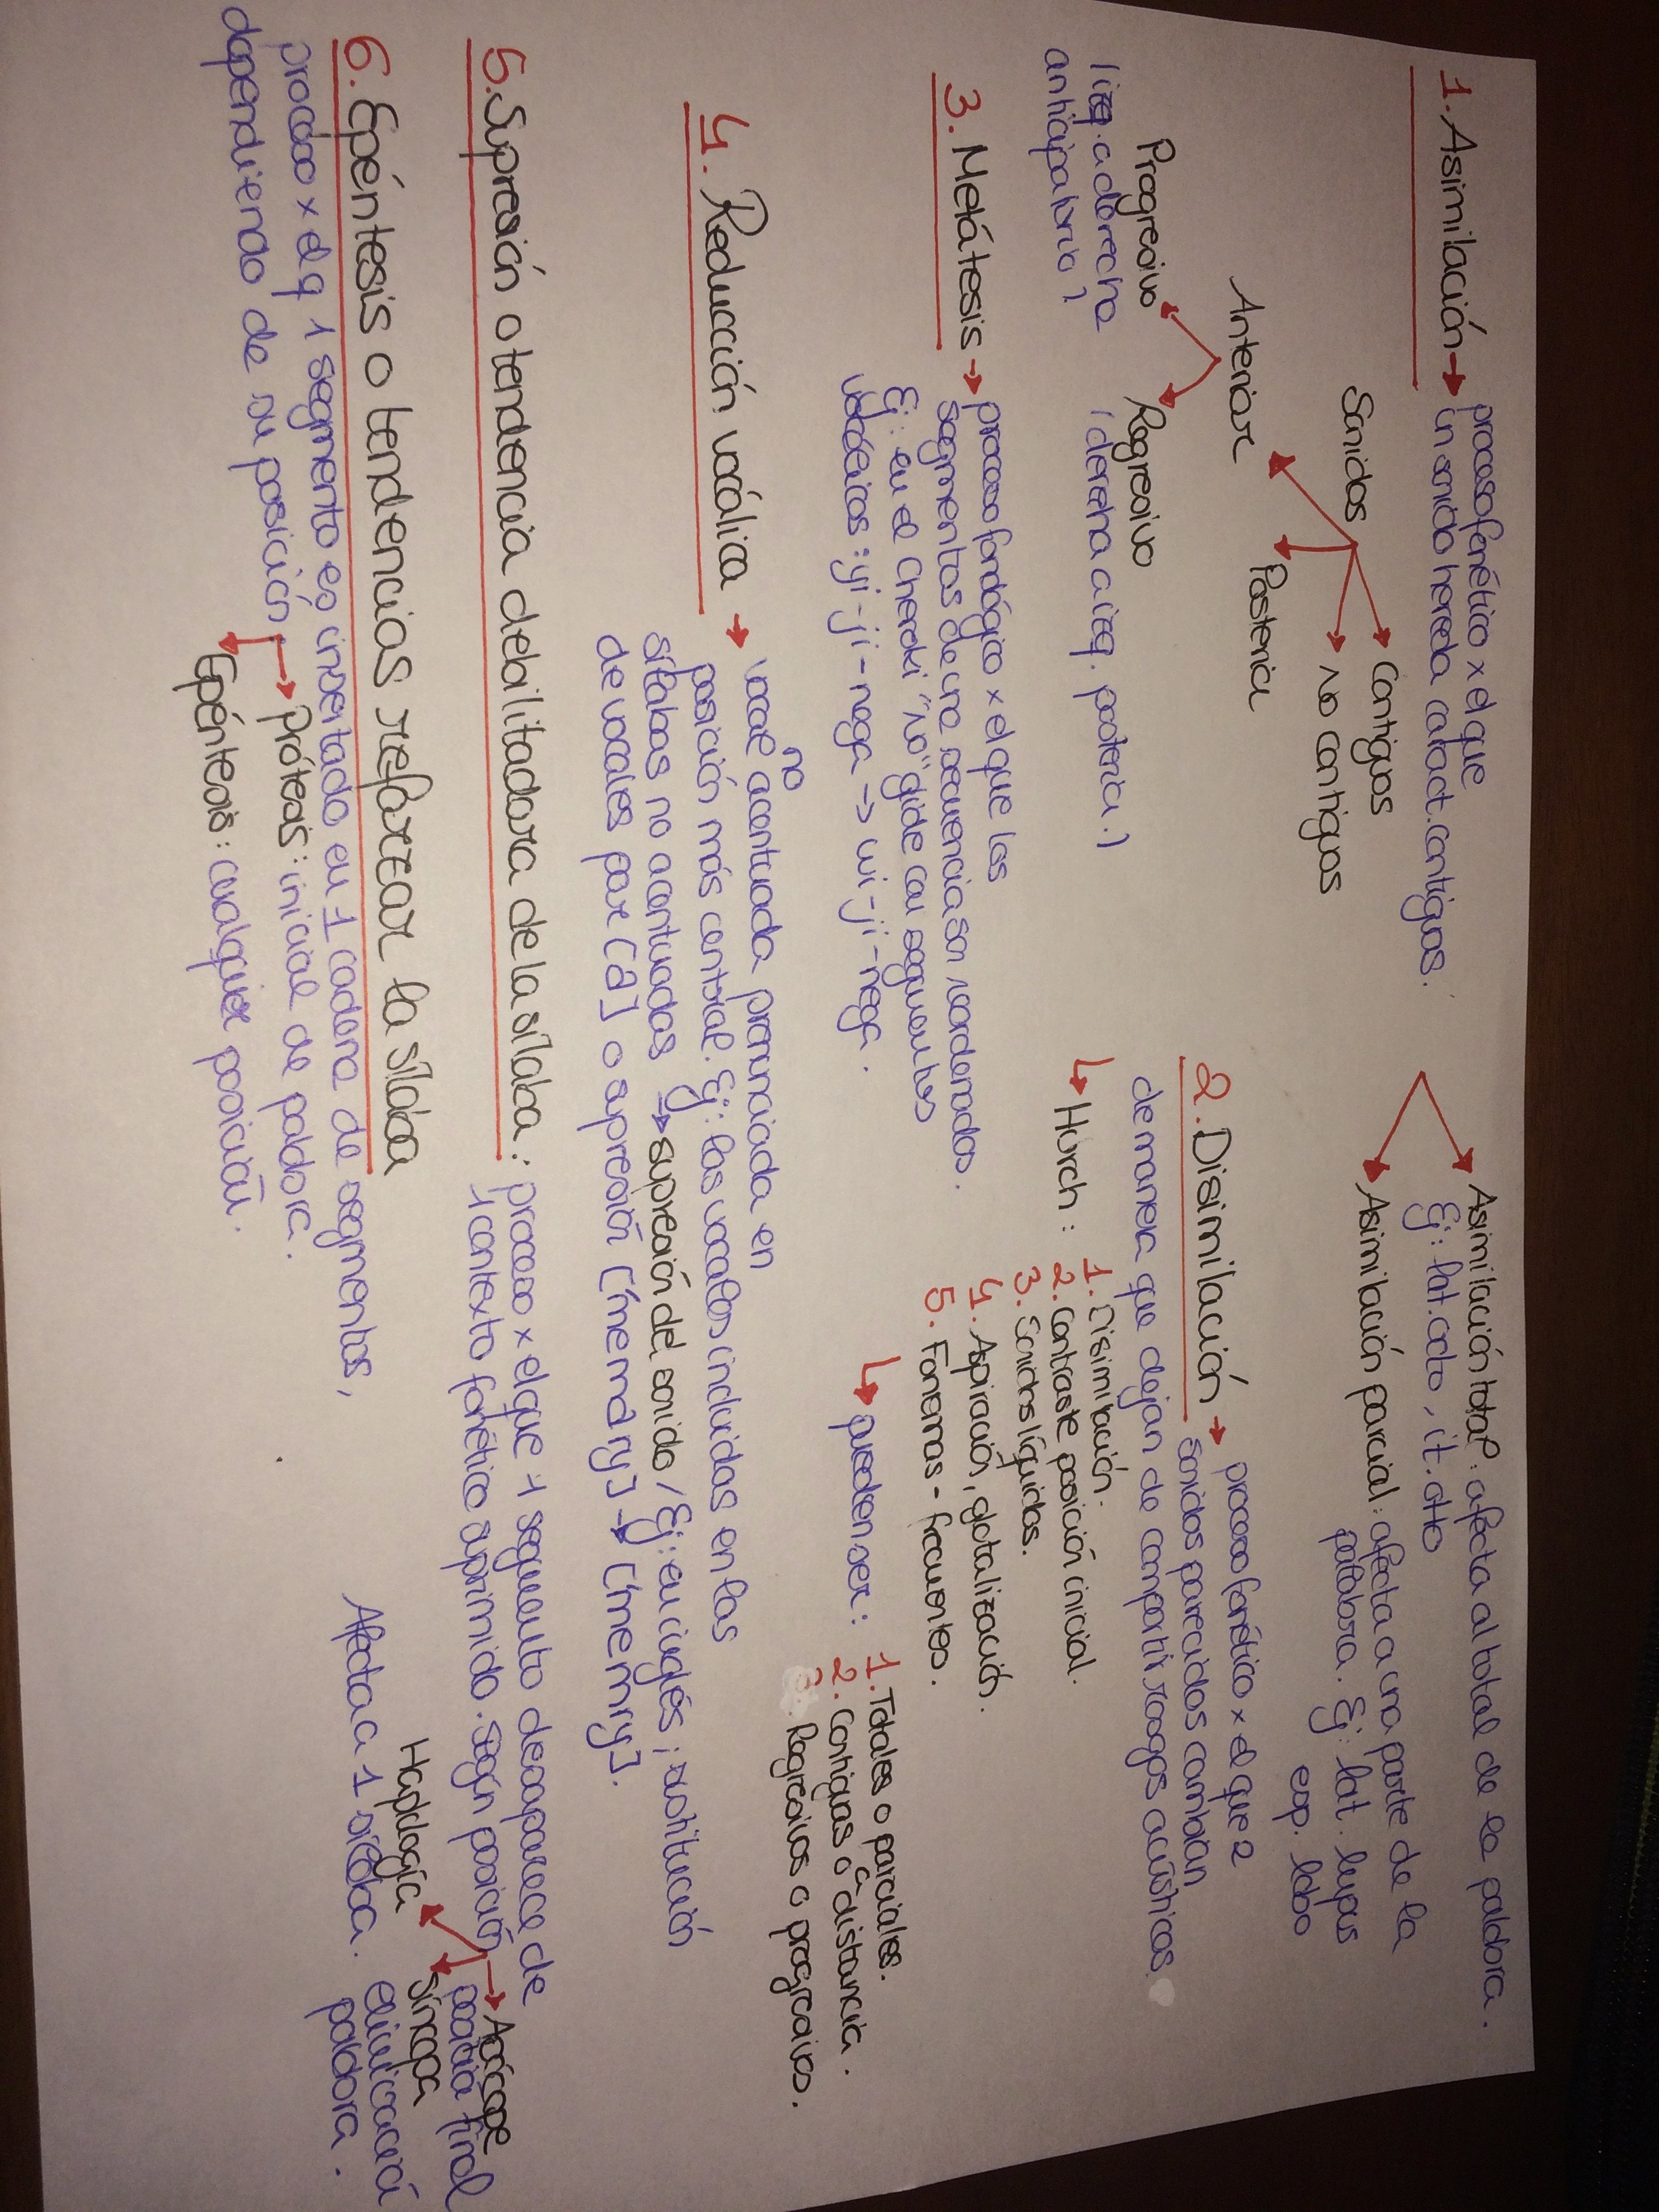 1. Asimilación → proceso fonético x el que
un sonido hereda caract. contiguos.
Sonidos
Contiguos
no contiguos
Anterior
Posterior
Progresivo
(izq. a derecha
anticipatorio)
Regresivo
(derecha a izq. posterior.)
Asimilación total: afecta al total de la palabra.
Ej: lat. octo, it. otto
Asimilación parcial: afecta a una parte de la
palabra. Ej: lat. lupus
esp. lobo
2. Disimilación → proceso fonético x el que 2
sonidos parecidos cambian
de manera que dejan de compartir rasgos acústicos.
↳ Hurch: 1. Disimilación.
2. Contraste posición inicial.
3. Sonidos líquidos.
4. Aspiración, glotalización.
5. Fonemas - frecuentes.
↳ pueden ser: 1. Totales o parciales.
2. Contiguas o a distancia.
3. Regresivos o progresivos.
3. Metátesis → proceso fonológico x el que los
segmentos de una secuencia son reordenados.
Ej: en el Cheroki "no" gide con segmentos
vocálicos: yi-ji-nega → wi-ji-nega.
4. Reducción vocálica → vocal no acentuada pronunciada en
posición más central. Ej: las vocales incluidas en las
sílabas no acentuadas → supresión del sonido / Ej: en inglés; sustitución
de vocales por [ə] o supresión ['meməry] → ['memry].
5. Supresión o tendencia debilitadora de la sílaba: proceso x el que 1 segmento desaparece de
1 contexto fonético suprimido. Según posición
Apócope
posición final
Síncopa
en
palabra.
Haplología
Afecta a 1 sílaba.
6. Epéntesis o tendencias reforzar la sílaba
proceso x el q 1 segmento es insertado en 1 cadena de segmentos,
dependiendo de su posición
→ Prótesis: inicial de palabra.
Epéntesis: cualquier posición.